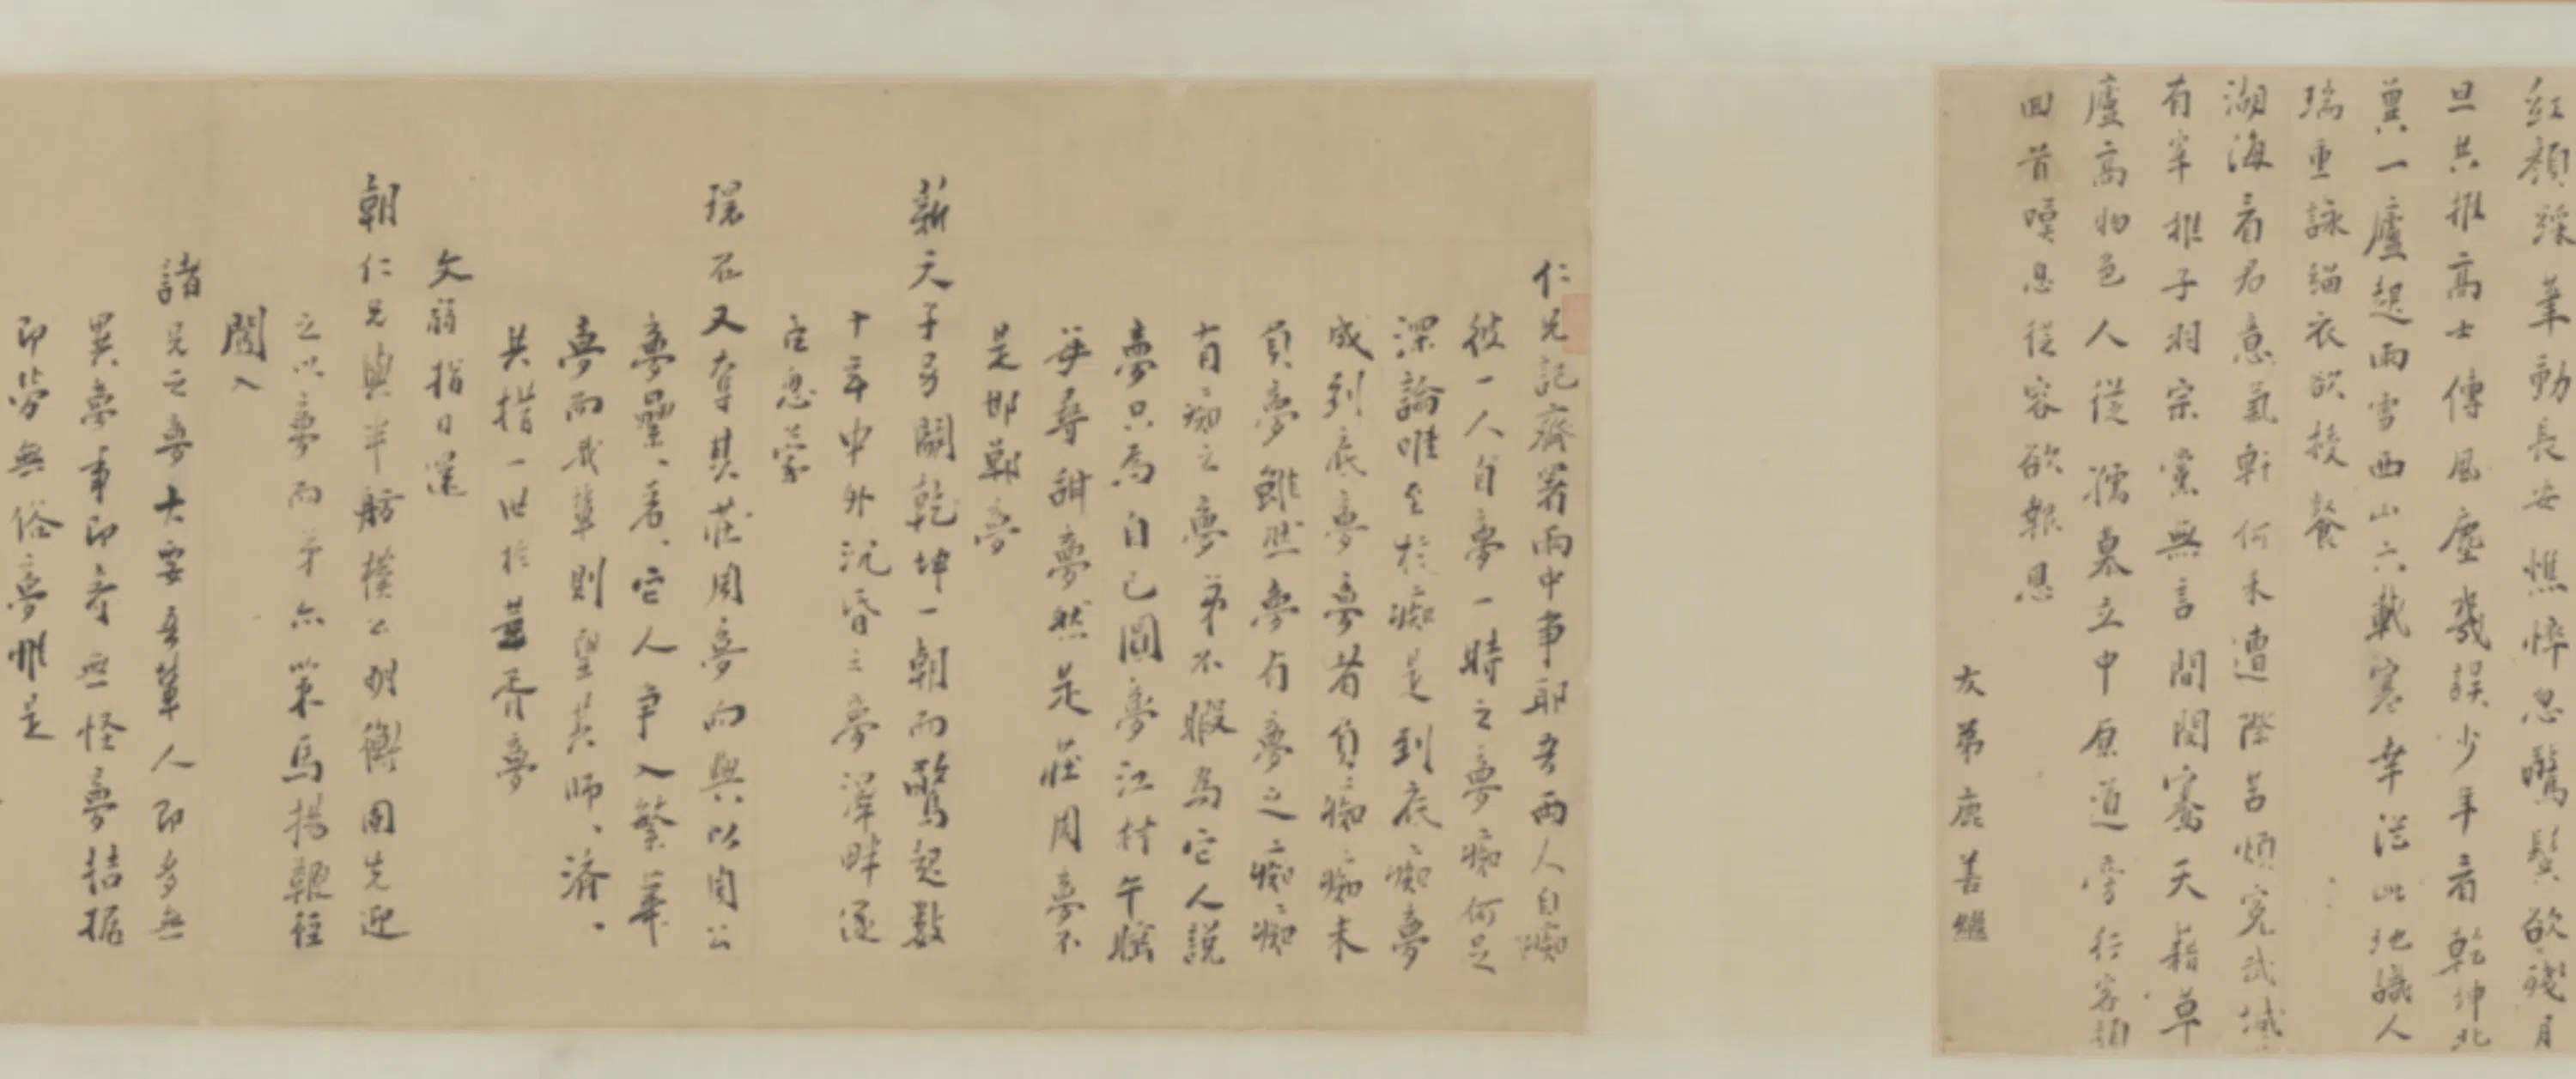 紅顏綵筆動長安憔悴忽驚鬢欲殘月
旦共推高士傳風塵幾誤少年看乾坤北
冀一廬起雨雪西山六載寒幸從此地識人
瑞重詠緇衣欲授餐
湖海看君意氣軒何未遭際苦煩冤武城
有宰推子羽宗黨無言間閔騫天藉草
廬高物色人從孺慕立中原道旁行客
回首嘆息從容欲報恩
友弟鹿善繼
仁兄記齋署雨中事耶吾兩人自癡
彼一人自夢一時之夢癡何足
深論唯至於癡是到底癡夢
成到底夢夢者負癡癡未
負夢雖然夢夢有夢之癡癡
有癡之夢弟不暇為它人說
夢只為自己圓夢江村午牕
每尋甜夢然是莊周夢不
是邯鄲夢
新天子另闢乾坤一朝而驚起數
十年中外沉昏之夢澤畔逐
臣忽蒙
環召又奪其莊周夢而與以周公
夢纍纍看看它人爭入繁華
夢而我輩則望其師師濟濟
共措一世於華胥夢
文弱指日還
朝仁兄與半舫樸公明衡囿先迎
之以夢而弟亦策馬揚鞭往
闖入
諸兄之夢大要吾輩人即多無
異夢事即奇無怪夢拮据
即勞無俗夢唯是